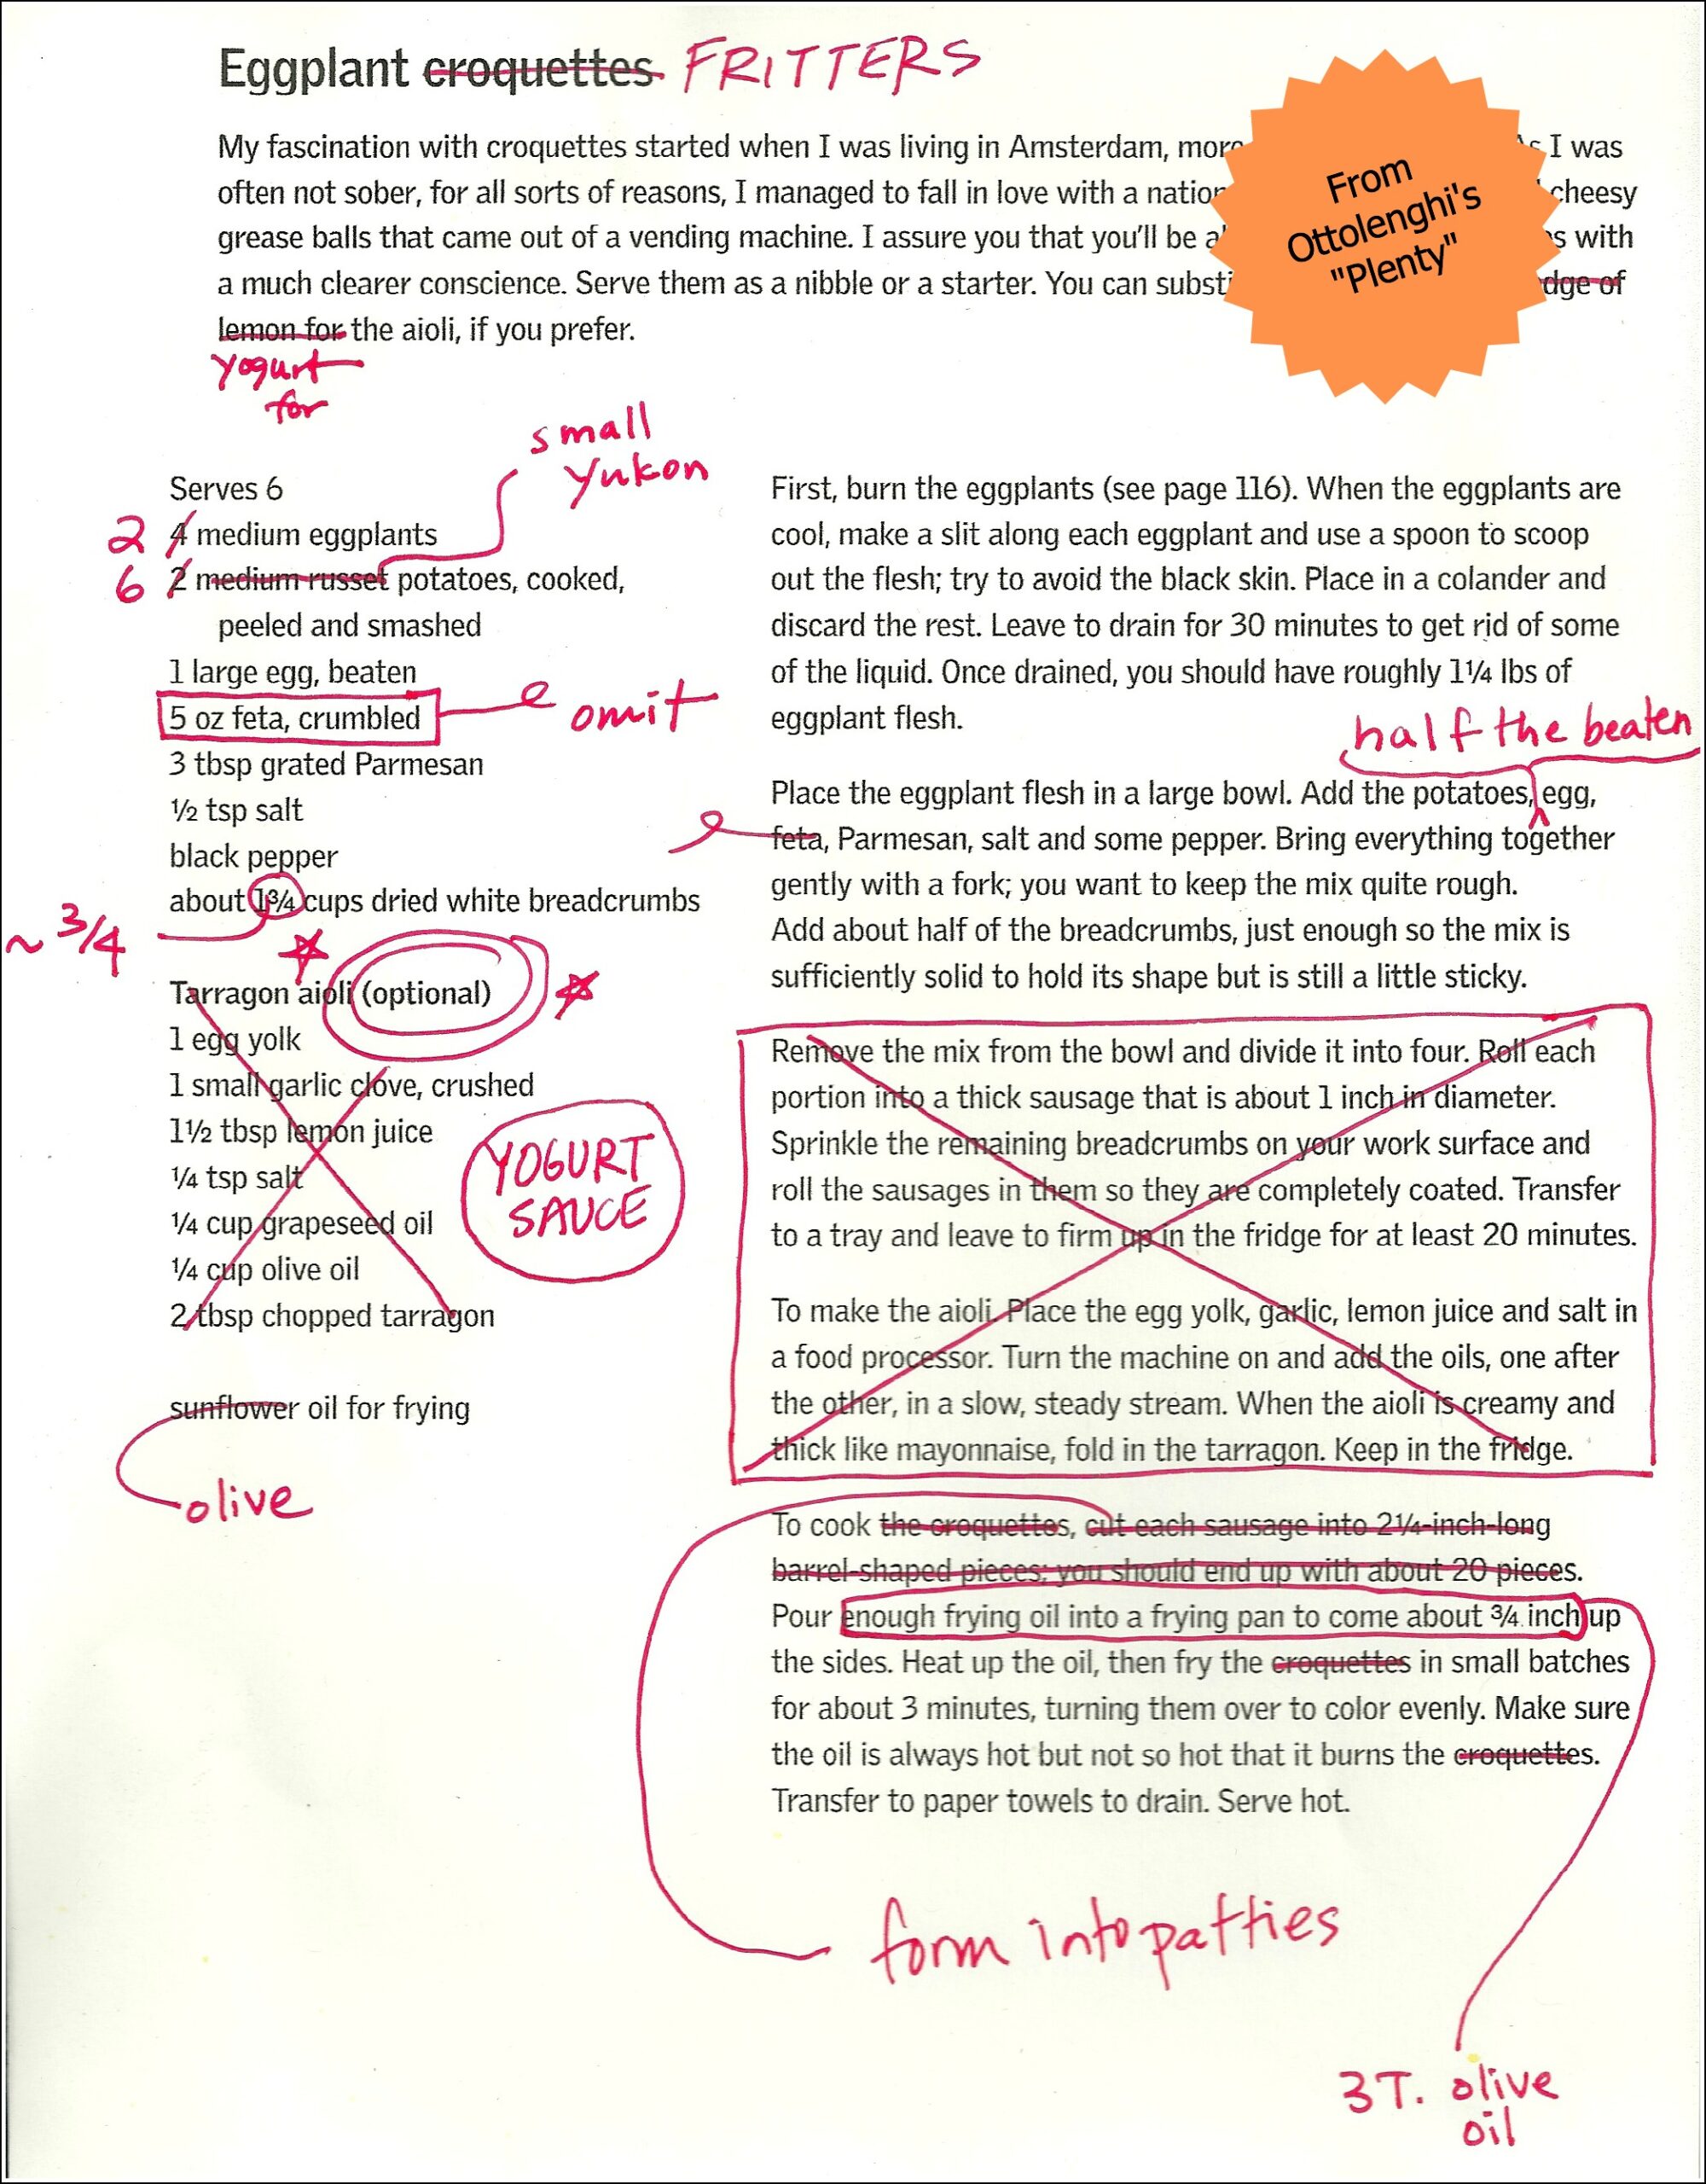 Eggplant croquettes FRITTERS
My fascination with croquettes started when I was living in Amsterdam, more I was
often not sober, for all sorts of reasons, I managed to fall in love with a cheesy
grease balls that came out of a vending machine. I assure you that you'll be with
a much clearer conscience. Serve them as a nibble or a starter. You can of
lemon for the aioli, if you prefer.
yogurt
for
From
Ottolenghi's
"Plenty"
small
yukon
Serves 6
2 4 medium eggplants
6 2 medium russet potatoes, cooked,
peeled and smashed
1 large egg, beaten
5 oz feta, crumbled omit
3 tbsp grated Parmesan
½ tsp salt
black pepper
about 1¾ cups dried white breadcrumbs
~ 3/4
Tarragon aioli (optional)
1 egg yolk
1 small garlic clove, crushed
1½ tbsp lemon juice
¼ tsp salt
¼ cup grapeseed oil
¼ cup olive oil
2 tbsp chopped tarragon
YOGURT
SAUCE
sunflower oil for frying
olive
First, burn the eggplants (see page 116). When the eggplants are
cool, make a slit along each eggplant and use a spoon to scoop
out the flesh; try to avoid the black skin. Place in a colander and
discard the rest. Leave to drain for 30 minutes to get rid of some
of the liquid. Once drained, you should have roughly 1¼ lbs of
eggplant flesh.
half the beaten
Place the eggplant flesh in a large bowl. Add the potatoes, egg,
feta, Parmesan, salt and some pepper. Bring everything together
gently with a fork; you want to keep the mix quite rough.
Add about half of the breadcrumbs, just enough so the mix is
sufficiently solid to hold its shape but is still a little sticky.
Remove the mix from the bowl and divide it into four. Roll each
portion into a thick sausage that is about 1 inch in diameter.
Sprinkle the remaining breadcrumbs on your work surface and
roll the sausages in them so they are completely coated. Transfer
to a tray and leave to firm up in the fridge for at least 20 minutes.
To make the aioli. Place the egg yolk, garlic, lemon juice and salt in
a food processor. Turn the machine on and add the oils, one after
the other, in a slow, steady stream. When the aioli is creamy and
thick like mayonnaise, fold in the tarragon. Keep in the fridge.
To cook the croquettes, cut each sausage into 2¼-inch-long
barrel-shaped pieces; you should end up with about 20 pieces.
Pour enough frying oil into a frying pan to come about ¾ inch up
the sides. Heat up the oil, then fry the croquettes in small batches
for about 3 minutes, turning them over to color evenly. Make sure
the oil is always hot but not so hot that it burns the croquettes.
Transfer to paper towels to drain. Serve hot.
form into patties
3T. olive
oil